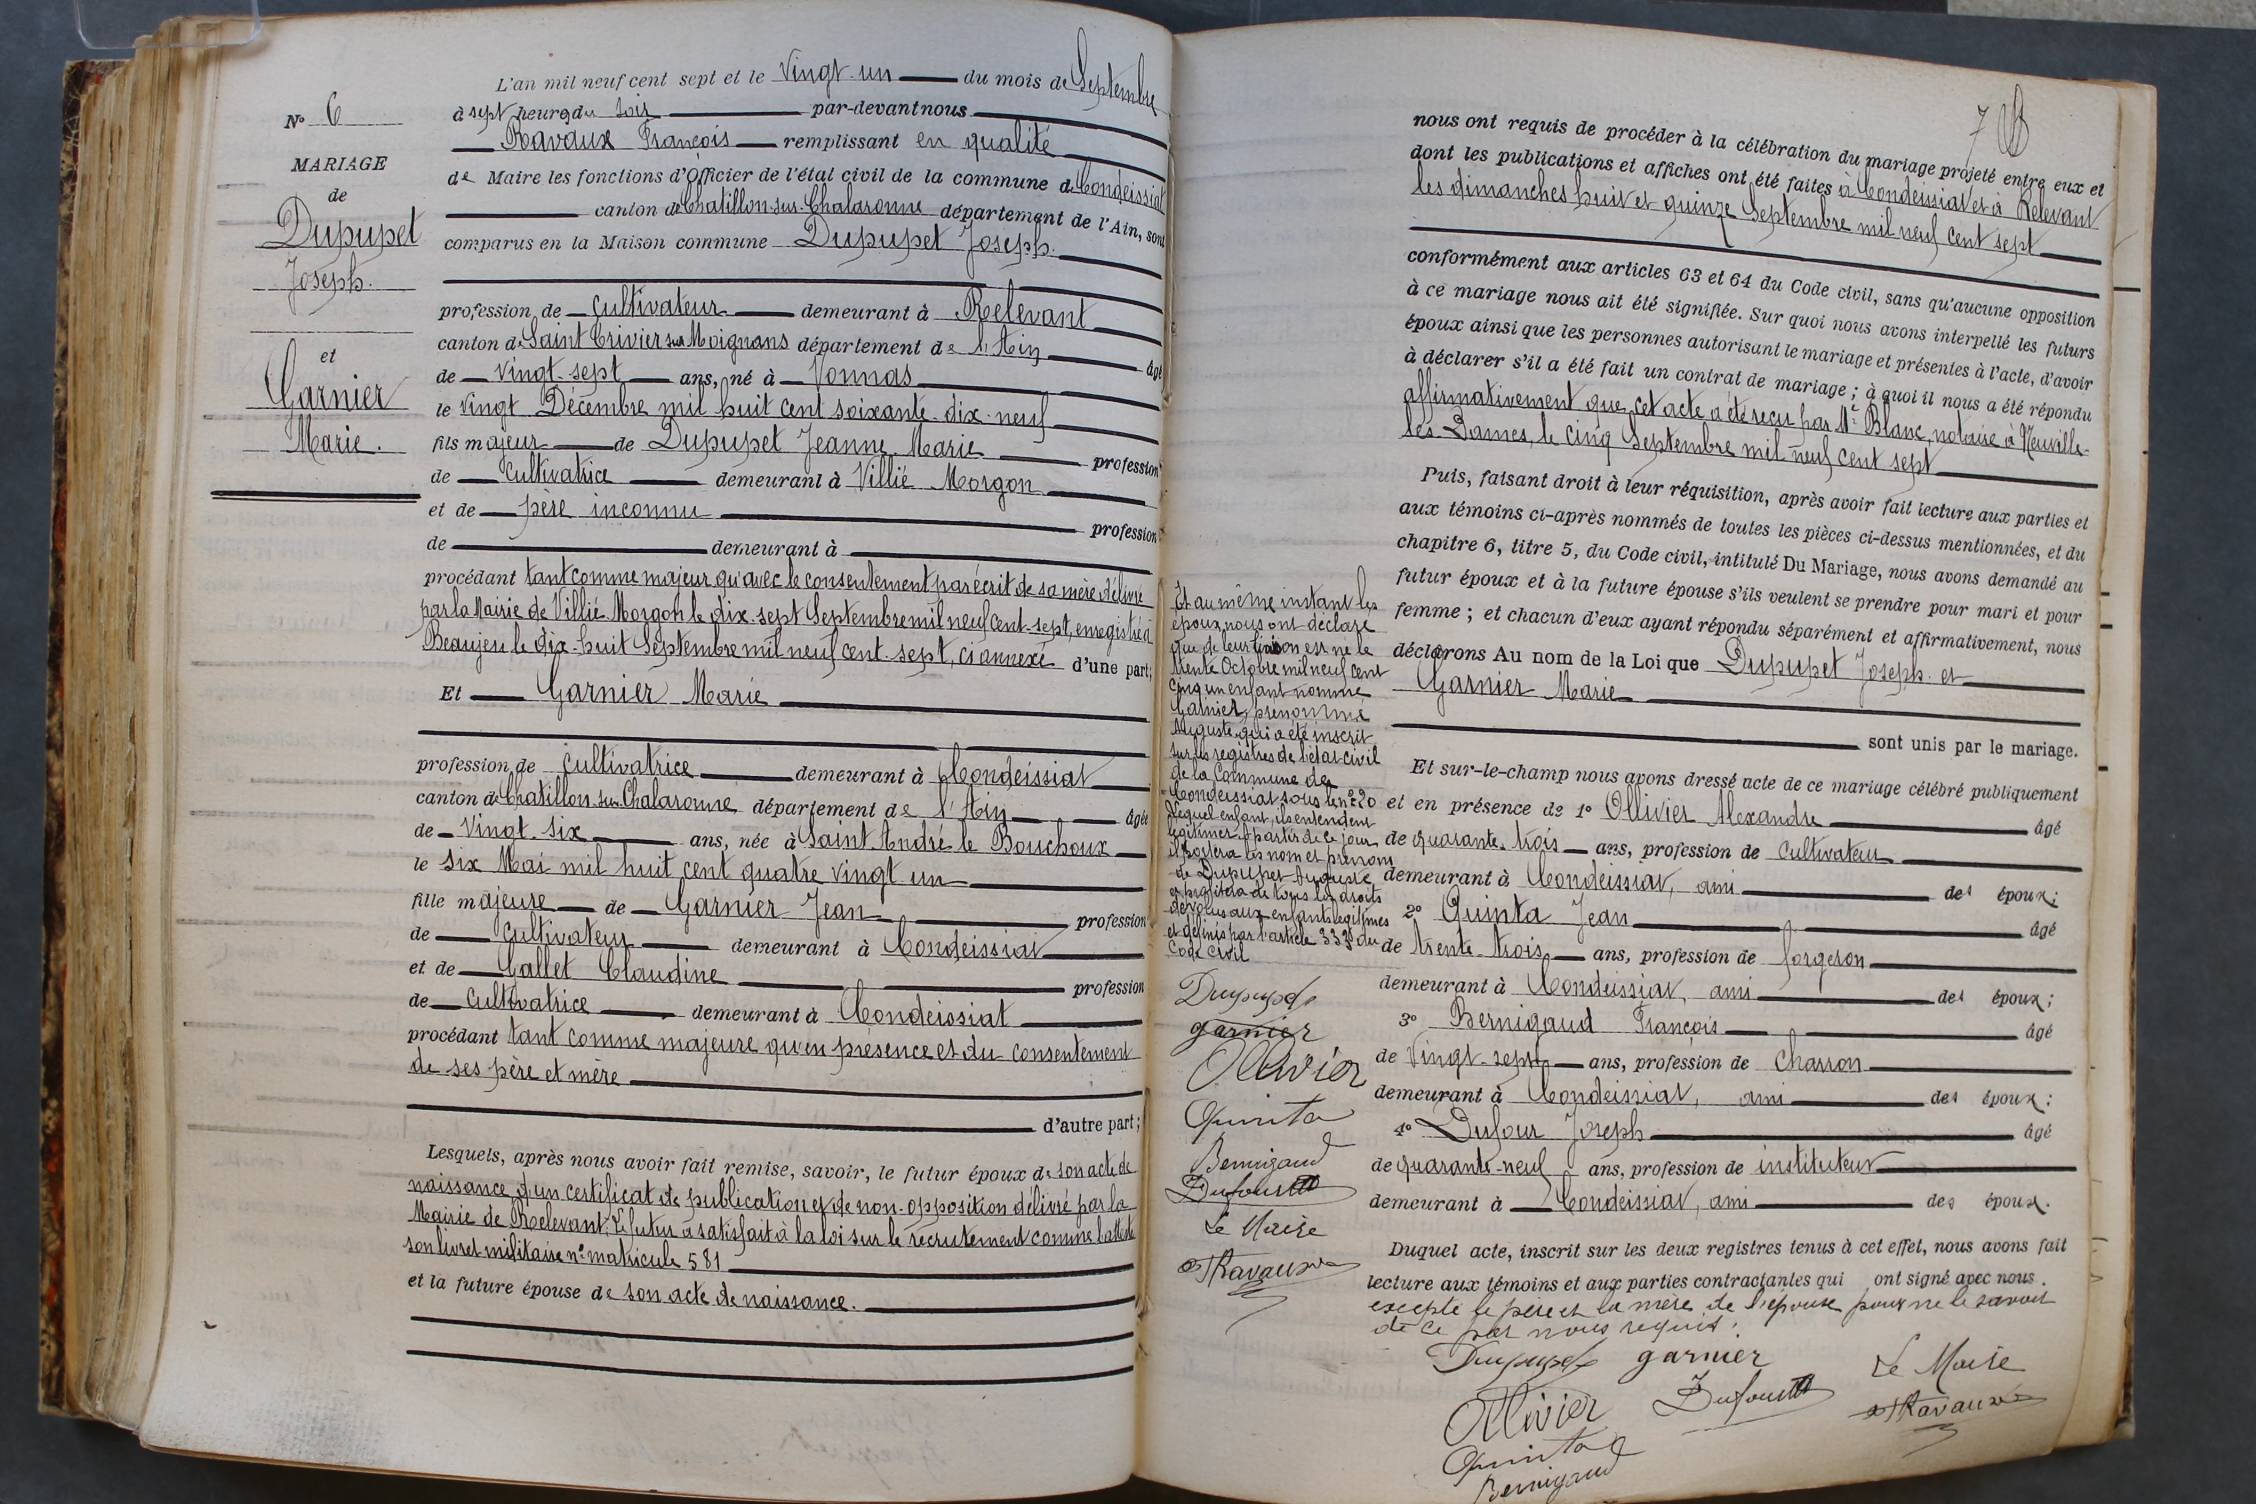 L'an mil neuf cent sept et le vingt-un du mois de Septembre
N° 6
à sept heures du soir par-devant nous
Ravaux François remplissant en qualité
MARIAGE
de Maire les fonctions d'Officier de l'état civil de la commune de Condeissiat
de
canton de Chatillon-sur-Chalaronne département de l'Ain, sont
Dupupet
comparus en la Maison commune Dupupet Joseph.
Joseph.
profession de cultivateur demeurant à Relevant
canton de Saint Trivier sur Moignans département de l'Ain âgé
et
de vingt-sept ans, né à Vonnas
Garnier
le vingt Décembre mil huit cent soixante-dix-neuf
Marie.
fils majeur de Dupupet Jeanne Marie profession
de cultivatrice demeurant à Villié Morgon
et de père inconnu profession
de demeurant à
procédant tant comme majeur qu'avec le consentement par écrit de sa mère délivré
par la Mairie de Villié-Morgon le dix-sept Septembre mil neuf cent-sept, enregistré à
Beaujeu le dix-huit Septembre mil neuf cent-sept, ci annexé d'une part;
Et Garnier Marie
profession de cultivatrice demeurant à Condeissiat
canton de Chatillon-sur-Chalaronne département de l'Ain âgée
de vingt-six ans, née à Saint André le Bouchoux
le six Mai mil huit cent quatre vingt un
fille majeure de Garnier Jean profession
de cultivateur demeurant à Condeissiat
et de Gallet Claudine profession
de cultivatrice demeurant à Condeissiat
procédant tant comme majeure qu'en présence et du consentement
de ses père et mère
d'autre part;
Lesquels, après nous avoir fait remise, savoir, le futur époux de son acte de
naissance d'un certificat de publication et de non-opposition délivré par la
Mairie de Relevant; Le futur a satisfait à la loi sur le recrutement comme l'atteste
son livret militaire n° matricule 581
et la future épouse de son acte de naissance.
7
nous ont requis de procéder à la célébration du mariage projeté entre eux et
dont les publications et affiches ont été faites à Condeissiat et à Relevant
les dimanches huit et quinze Septembre mil neuf cent sept
conformément aux articles 63 et 64 du Code civil, sans qu'aucune opposition
à ce mariage nous ait été signifiée. Sur quoi nous avons interpellé les futurs
époux ainsi que les personnes autorisant le mariage et présentes à l'acte, d'avoir
à déclarer s'il a été fait un contrat de mariage; à quoi il nous a été répondu
affirmativement que cet acte a été reçu par Me Blanc, notaire à Neuville-
les-Dames, le cinq Septembre mil neuf cent sept
Puis, faisant droit à leur réquisition, après avoir fait lecture aux parties et
aux témoins ci-après nommés de toutes les pièces ci-dessus mentionnées, et du
chapitre 6, titre 5, du Code civil, intitulé Du Mariage, nous avons demandé au
futur époux et à la future épouse s'ils veulent se prendre pour mari et pour
femme; et chacun d'eux ayant répondu séparément et affirmativement, nous
déclarons Au nom de la Loi que Dupupet Joseph et
Garnier Marie
sont unis par le mariage.
Et sur-le-champ nous avons dressé acte de ce mariage célébré publiquement
et en présence de 1° Ollivier Alexandre âgé
de quarante-trois ans, profession de cultivateur
demeurant à Condeissiat, ami des époux;
2° Quinta Jean âgé
de trente-trois ans, profession de forgeron
demeurant à Condeissiat, ami des époux;
3° Bernigaud François âgé
de vingt-sept ans, profession de charron
demeurant à Condeissiat, ami des époux;
4° Dufour Joseph âgé
de quarante-neuf ans, profession de instituteur
demeurant à Condeissiat, ami des époux.
Duquel acte, inscrit sur les deux registres tenus à cet effet, nous avons fait
lecture aux témoins et aux parties contractantes qui ont signé avec nous.
excepté le père et la mère de l'épouse pour ne le savoir
de ce par nous requis.
Dupupet garnier Le Maire
Ollivier Dufour Ravaux
Quinta
Bernigaud
Et au même instant les
époux nous ont déclaré
que de leur liaison est né le
trente Octobre mil neuf cent
cinq un enfant nommé
Garnier, prénommé
Auguste qui a été inscrit
sur les registres de l'état civil
de la Commune de
Condeissiat sous le n° 20
lequel enfant, ils entendent
légitimer. A partir de ce jour
il portera les nom et prénom
de Dupupet Auguste
et profitera de tous les droits
dévolus aux enfants légitimes
et définis par l'article 333 du
Code civil
Dupupet
garnier
Ollivier
Quinta
Bernigaud
Dufour
Le Maire
Ravaux